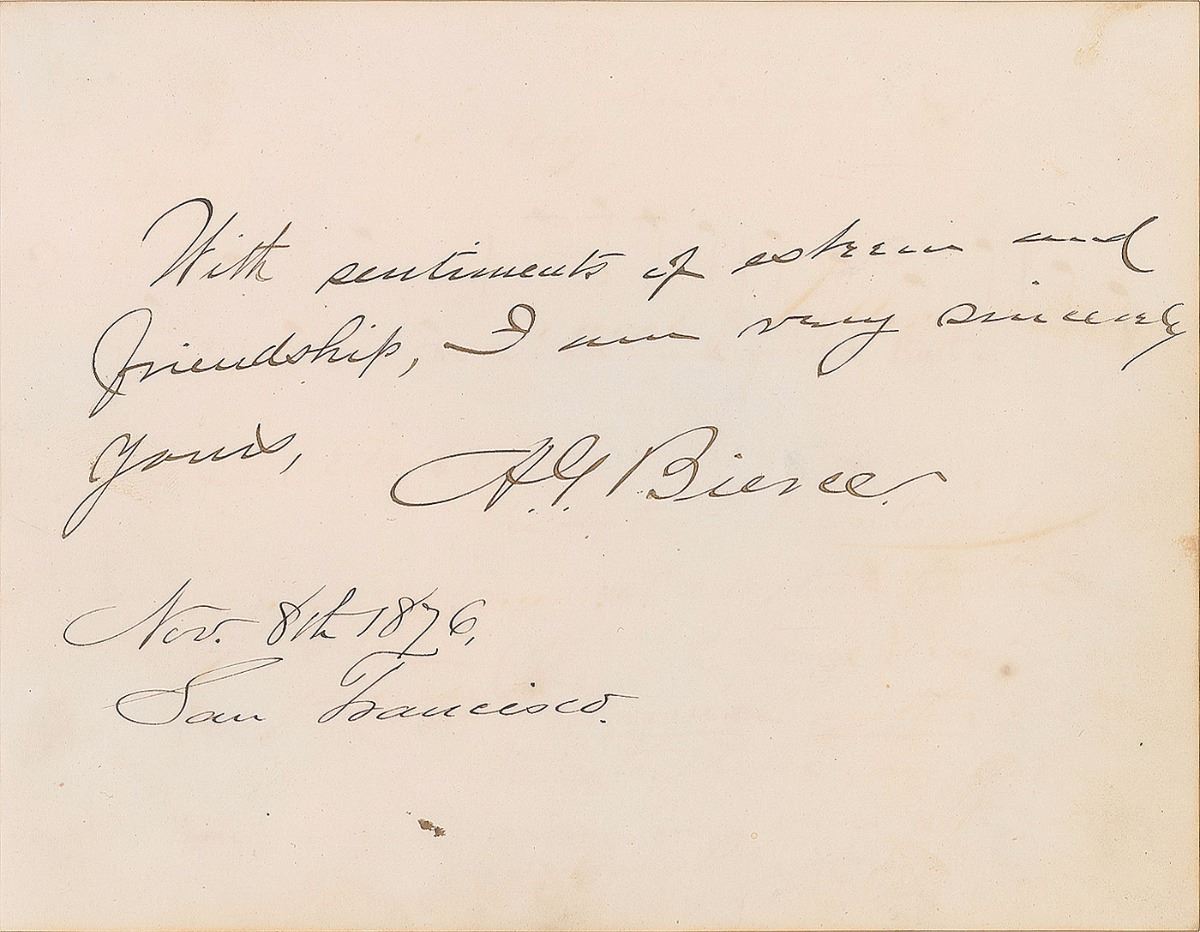 With sentiments of esteem and
friendship, I am very sincerely
yours, A.G. Bierce.
Nov. 8th 1876,
San Francisco.